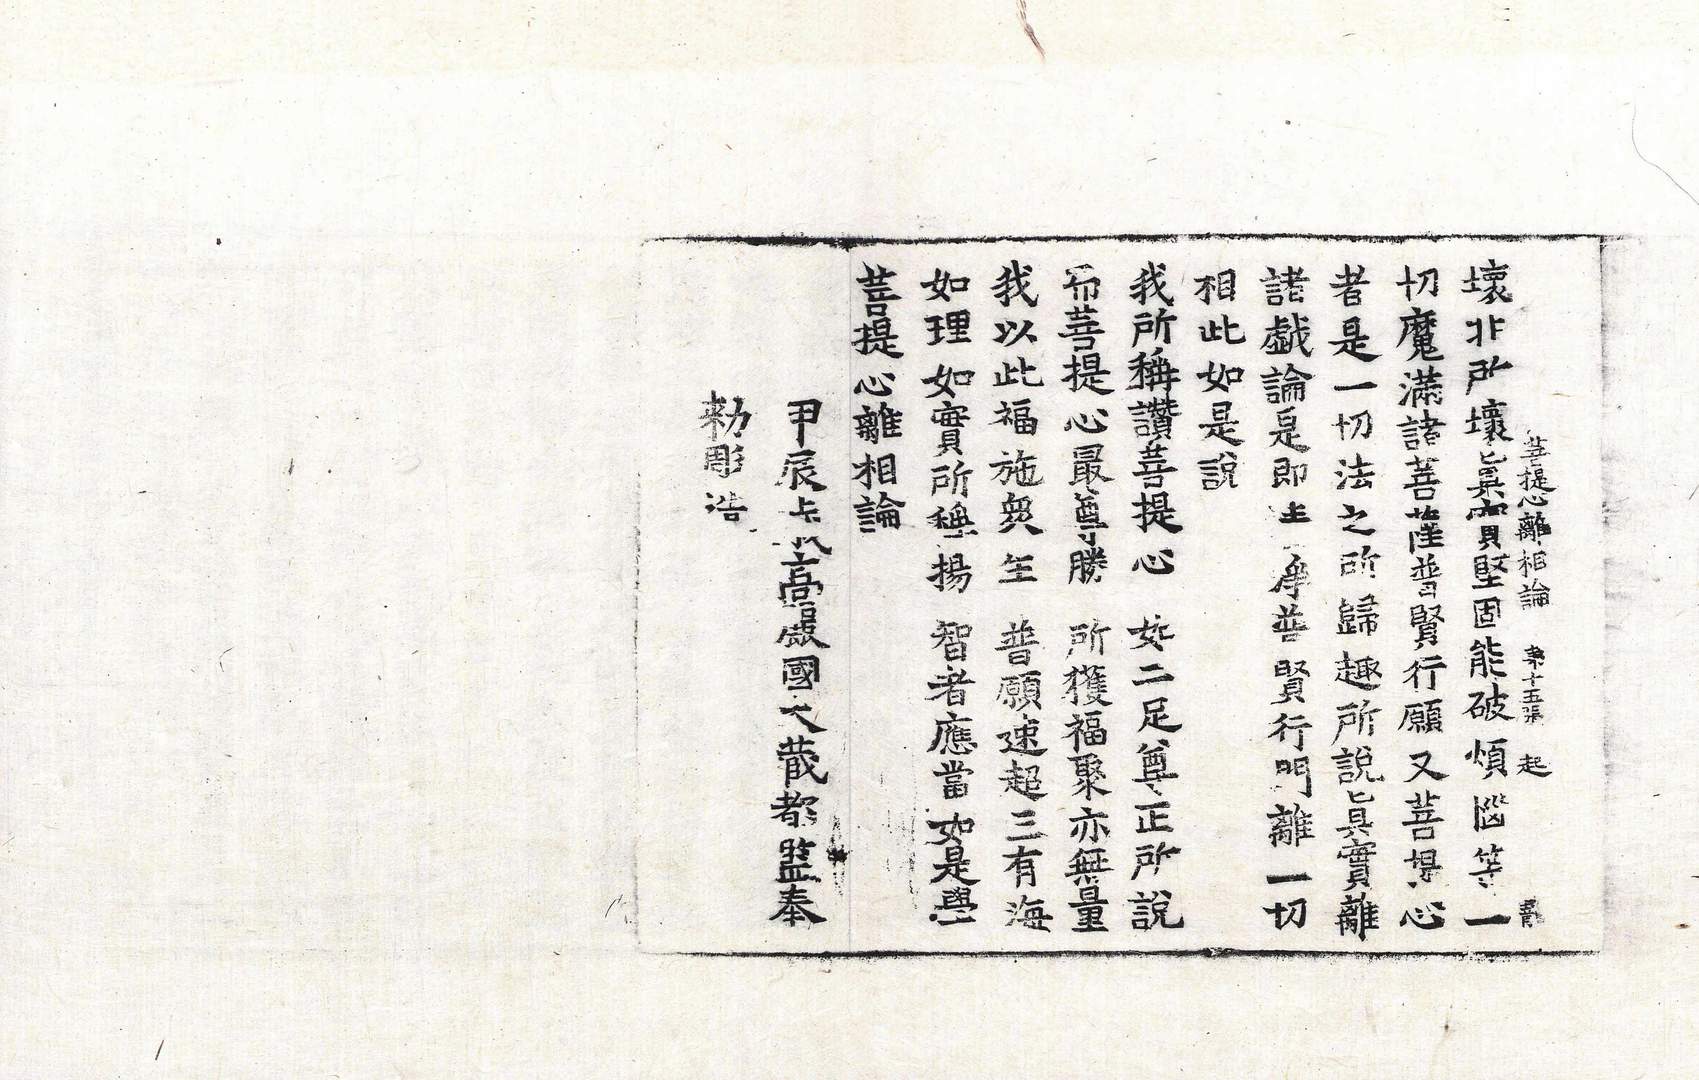 菩提心離相論 第十五張 起
壞非所壞眞實堅固能破煩惱等一
切魔滿諸菩薩普賢行願又菩提心
者是一切法之所歸趣所說眞實離
諸戲論是即 淨普賢行門離一切
相此如是說
我所稱讚菩提心 如二足尊正所說
而菩提心最尊勝 所獲福聚亦無量
我以此福施衆生 普願速超三有海
如理如實所稱揚 智者應當如是學
菩提心離相論
甲辰歲高麗國大藏都監奉
勑彫造